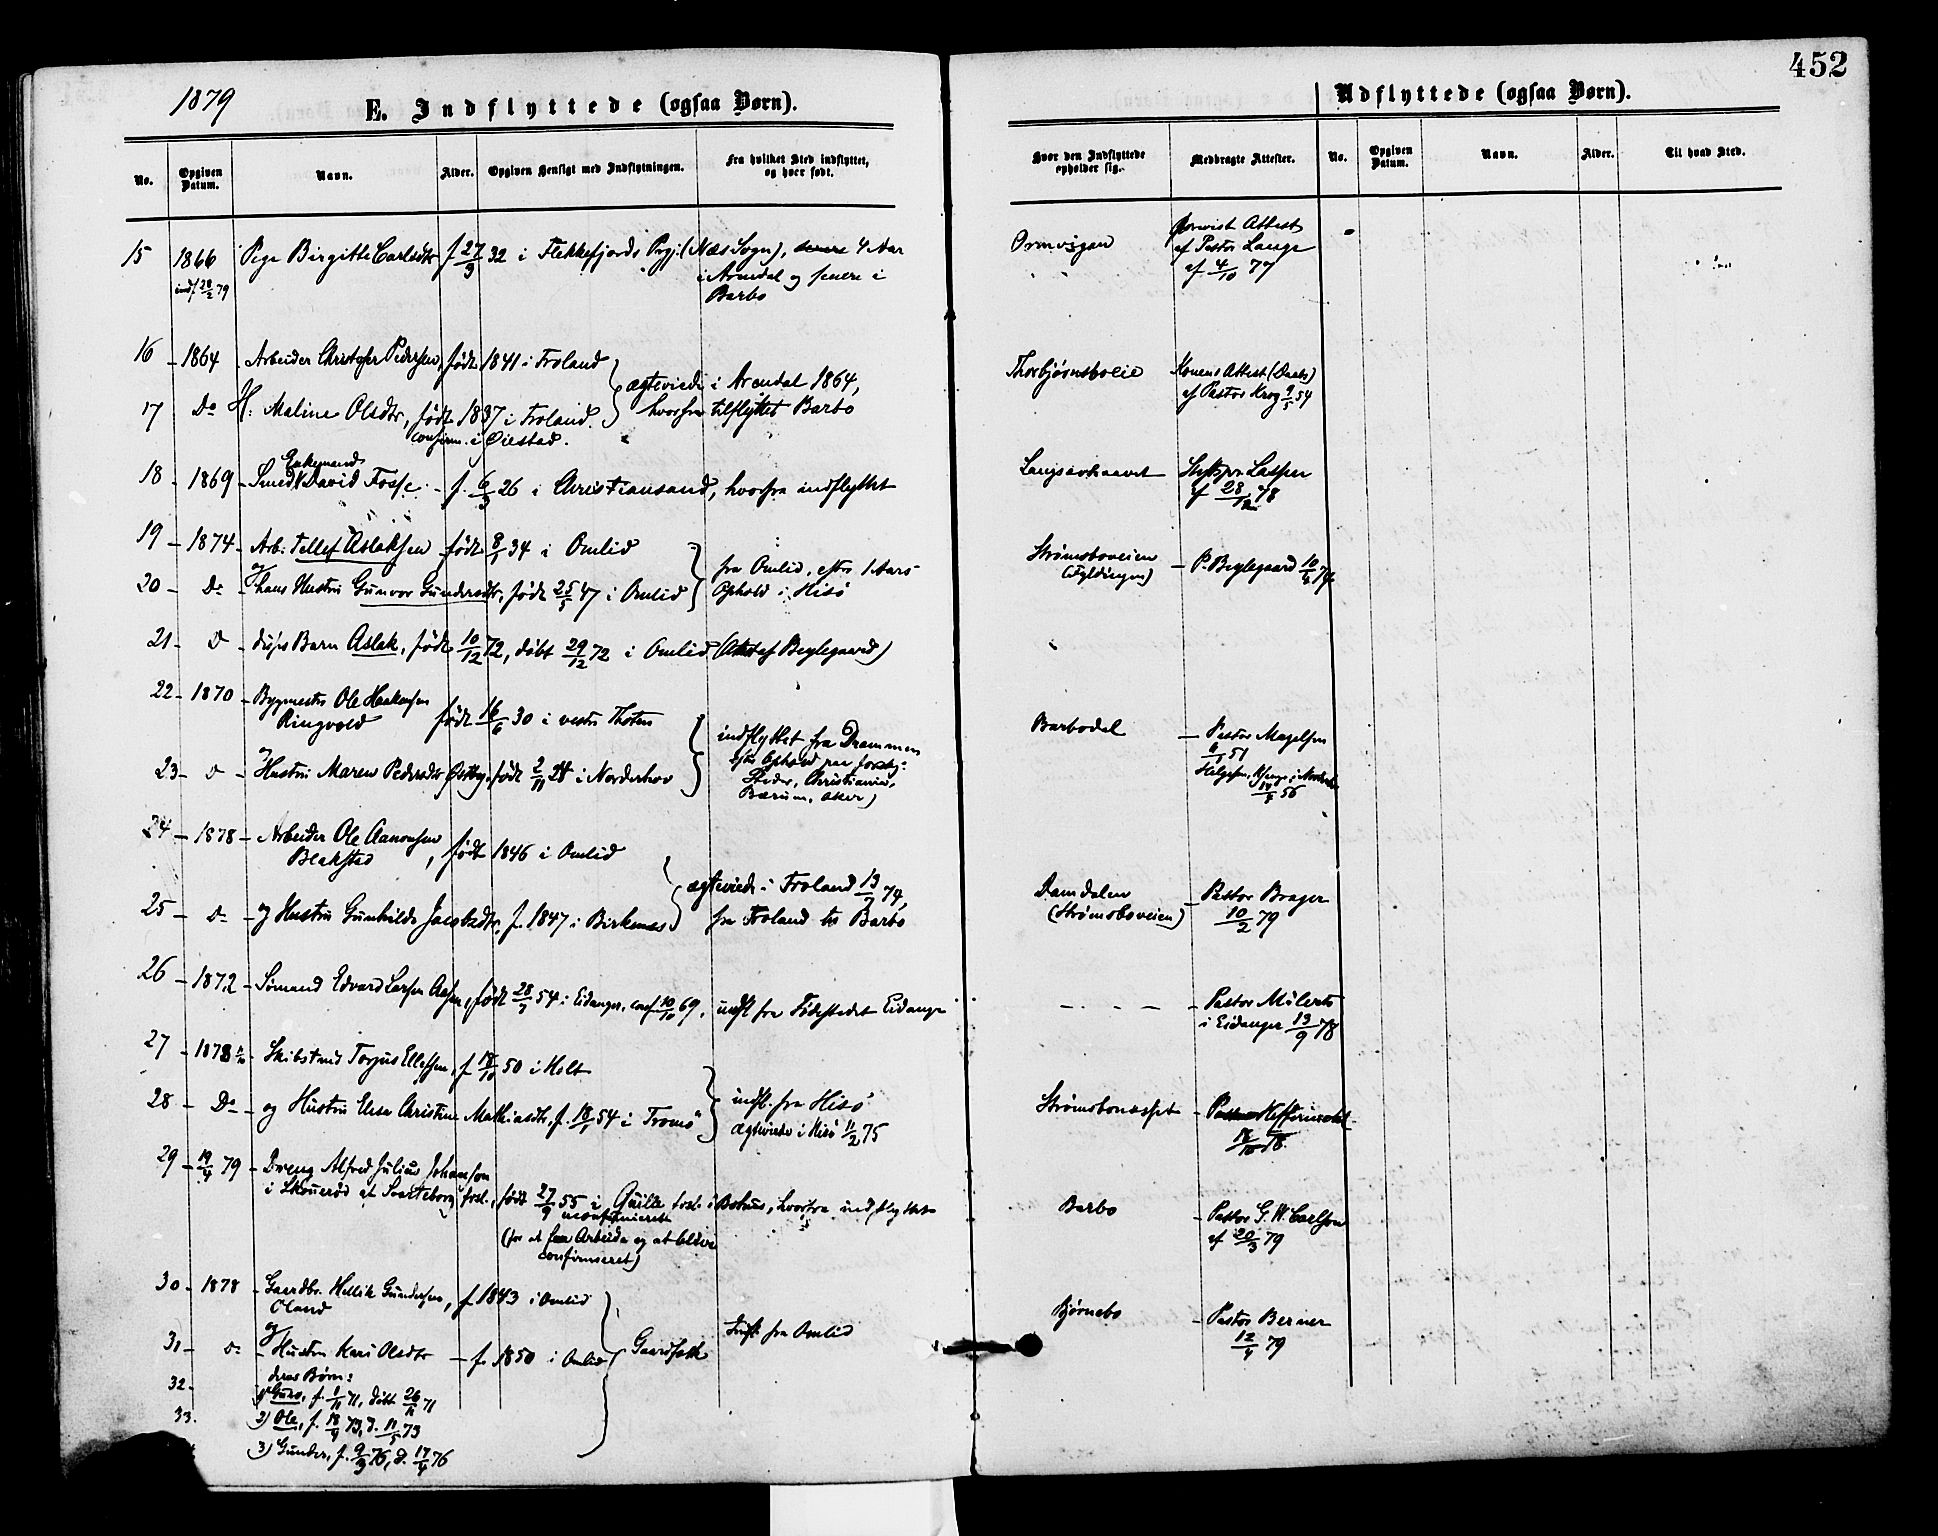 452
1879
E. Indflyttede (ogsaa Børn).
Udflyttede (ogsaa Børn).
No.
Opgiven Datum.
Navn.
Alder.
Opgiven Hensigt med Indflytningen.
Fra hvilket Sted indflyttet, og hvor født.
Hvor den Indflyttede opholder sig.
Medbragte Attester.
No.
Opgiven Datum.
Navn.
Alder.
Til hvad Sted.
15 1866 Pige Birgitte Carlsdtr f 27/3 32 i Flekkefjords Prgj. (Næs Sogn), 4 Aar
indf 28/2 79
i Arendal og senere i
Barbo
Ormvigen
Attest
af Pastor Lange
af 4/10 77
16 - 1864 Arbeider Christopher Pedersen, født 1841 i Froland
17 Do H: Maline Olsdtr, født 1837 i Froland.
confirm. i Øiestad.
ægteviede i Arendal 1864,
hvorfra tilflyttet Barbo
Thorbjørnsboeie
Konens Attest (Daab)
af Pastor Krog 9/5 54
Enkemand
18 - 1869 - Smed David Fosse - f. 6/3 26 i Christiansand, hvorfra indflyttet
af 28/12 78
19 - 1874 - Arb: Tellef Aslaksen født 8/1 34 i Omlid
og
20 - Do - hans Hustru Gunvor Gundersdtr, født 25/5 47 i Omlid
fra Omlid, efter 1 Aars
Ophold i Hisö
Strømsboveien
(Fyldingen)
- P. Beglegaard 10/4 74
21 - D - dises Barn Aslak, født 10/12 72, døbt 29/12 72 i Omlid (Attest af Beglegaard)
22 - 1870 - Bygmester Ole Haakensen
Ringvold født 16/6 30 i vestre Thoten
og
23 - D - Hustru Maren Pedersdtr Østby, født 2/11 28 i Norderhov
indflyttet fra Drammen
efter Ophold paa forskj:
Steder, Christiania,
Bærum, Aker)
Barbodal
- Pastor Magelsen
6/1 51
14/4 56
24 - 1878 - Arbeider Ole Aanonsen
Blakstad, født 1846 i Omlid
25 - D - og Hustru Gunhilde Jacobsdtr, f. 1847 i Birkenes
ægteviede i Froland 13/2 74,
fra Froland til Barbo
Damdalen
(Strømsboveien)
- Pastor Brager
10/2 79
26 - 1872 - Sømand Edvard Larsen Aasen, født 28/2 54 i Eidanger, conf 10/10 69, indfl fra Fødestedet Eidanger
- Pastor
i Eidanger 13/9 78
27 - 1878 - Skibstmd Torjus Ellefsen, f 18/10 50 i Holt
28 - Do - og Hustru Elise Christine Mathiasdtr, f. 18/1 54 i Tromö
indfl. fra Hisö
ægteviede i Hisö 11/2 75
Strømsbonæsset
18/10 78.
29 - 19/4 79 - Dreng Alfred Julius Johanson
i Skönerød at Svarteborg født 27/9 55 i Qville i Botnes, hvorfra indflyttet
(for at faa Arbeide og at blive
confirmeret)
Barbo
- Pastor G. W. Carlson
af 20/3 79
30 - 1878 - Gaardbr. Hellik Gundersen, f 1843 i Omlid
Öland
og
31 - D - Hustru Kari Olsdtr - f. 1850 i Omlid
Indfl. fra Omlid
Bjørnebo
- Pastor Berner
12/4 79
deres Børn:
32. 1) Guro, f. 1/11 71, døbt 26/11 71
33. 2) Ole, f. 18/4 73, d. 11/5 73
3) Gunder, f. 9/3 76, d. 17/4 76